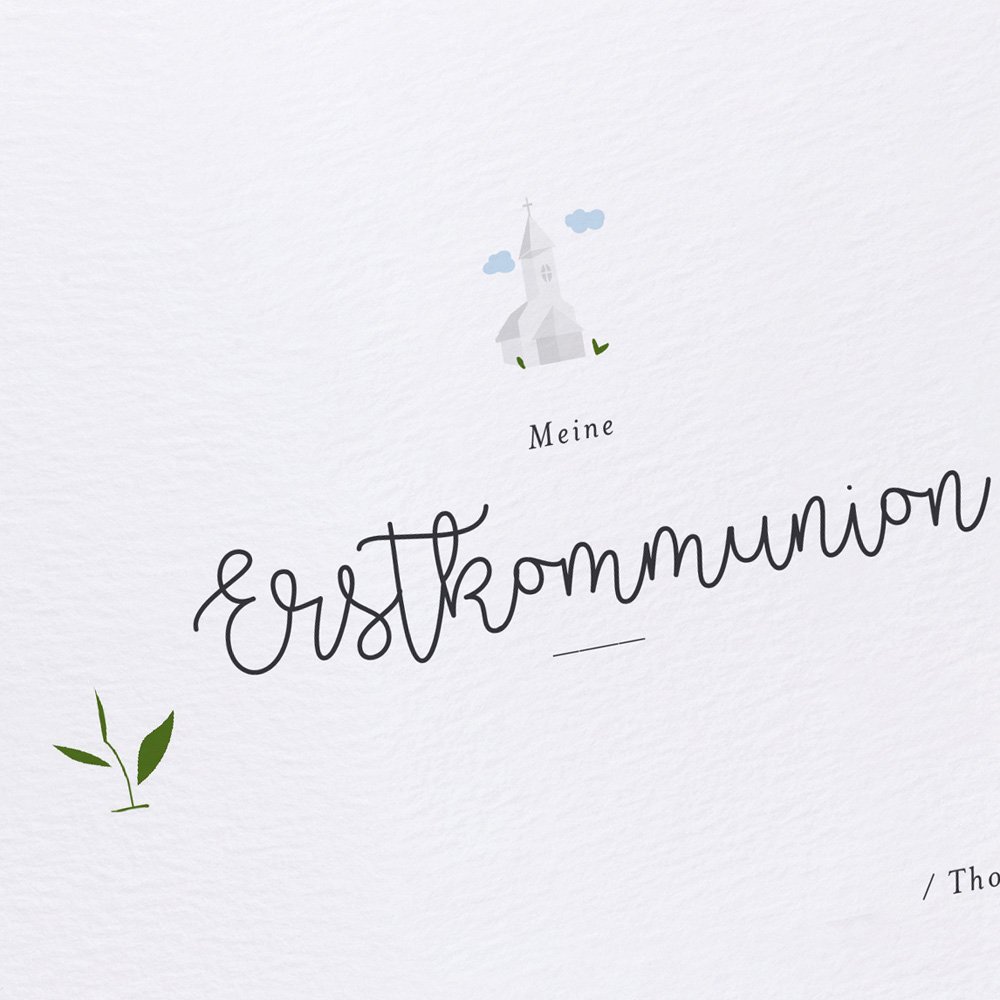 Meine
Erstkommunion
/ Tho